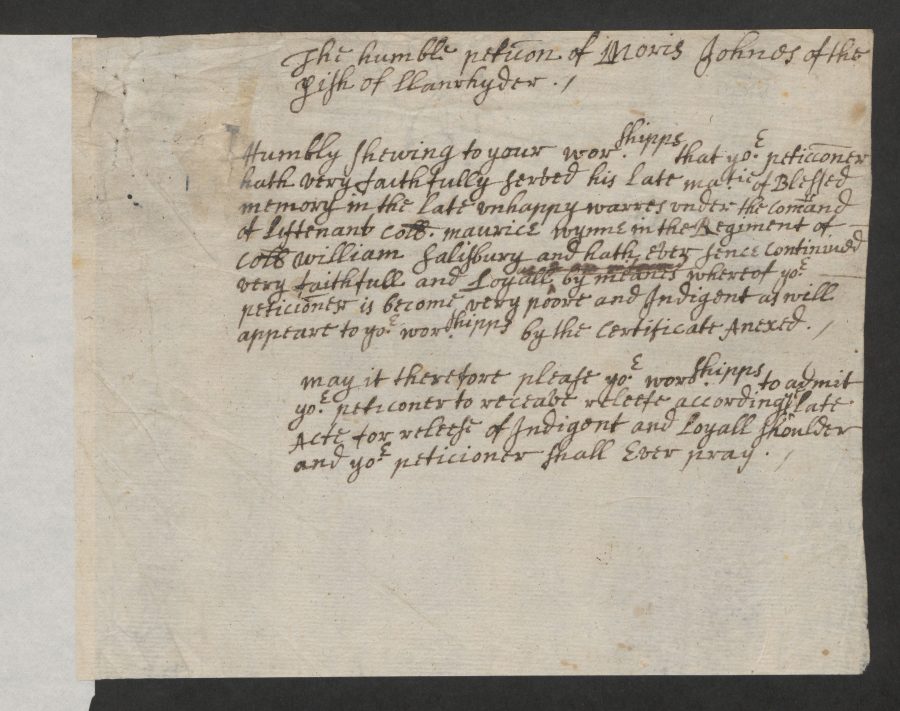 The humble petic̄on of Moris Johnes of the
p̄ish of llanrhyder . /
Humbly shewing to your worshipps that yor peticc̄oner
hath very faithfully served his late matie of Blessed
memory in the late vnhappy warres vnder the Com̄and
of Liftenant Coll: maurice wynne in the Regiment of
Coll William Salisbury and hath ever sence Continued
very faithfull and Loyall by meanes whereof yor
petic̄oner is become very poore and Indigent as will
appeare to yor worshipps by the Certificate Anexed . /
may it therefore please yor worshipps to admit
yor petic̄oner to receave releefe according late
Acte for releefe of Indigent and Loyall Shoulder
and yor peticioner shall Ever pray . /